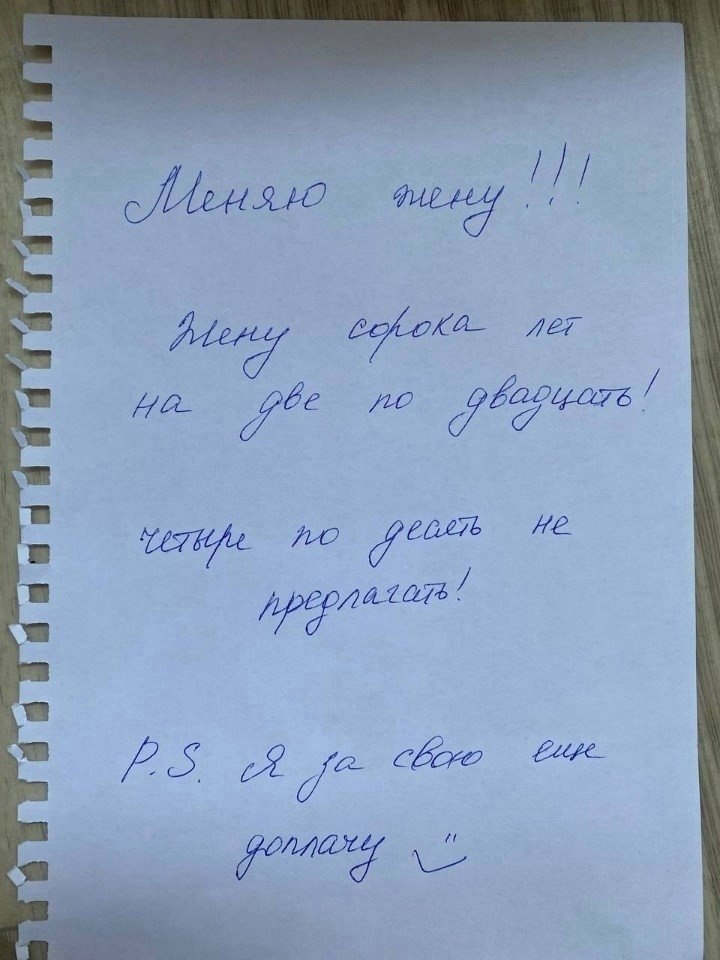 Меняю жену!!!
Жену сорока лет
на две по двадцать!
четыре по десять не
предлагать!
P.S. Я за свою еще
доплачу